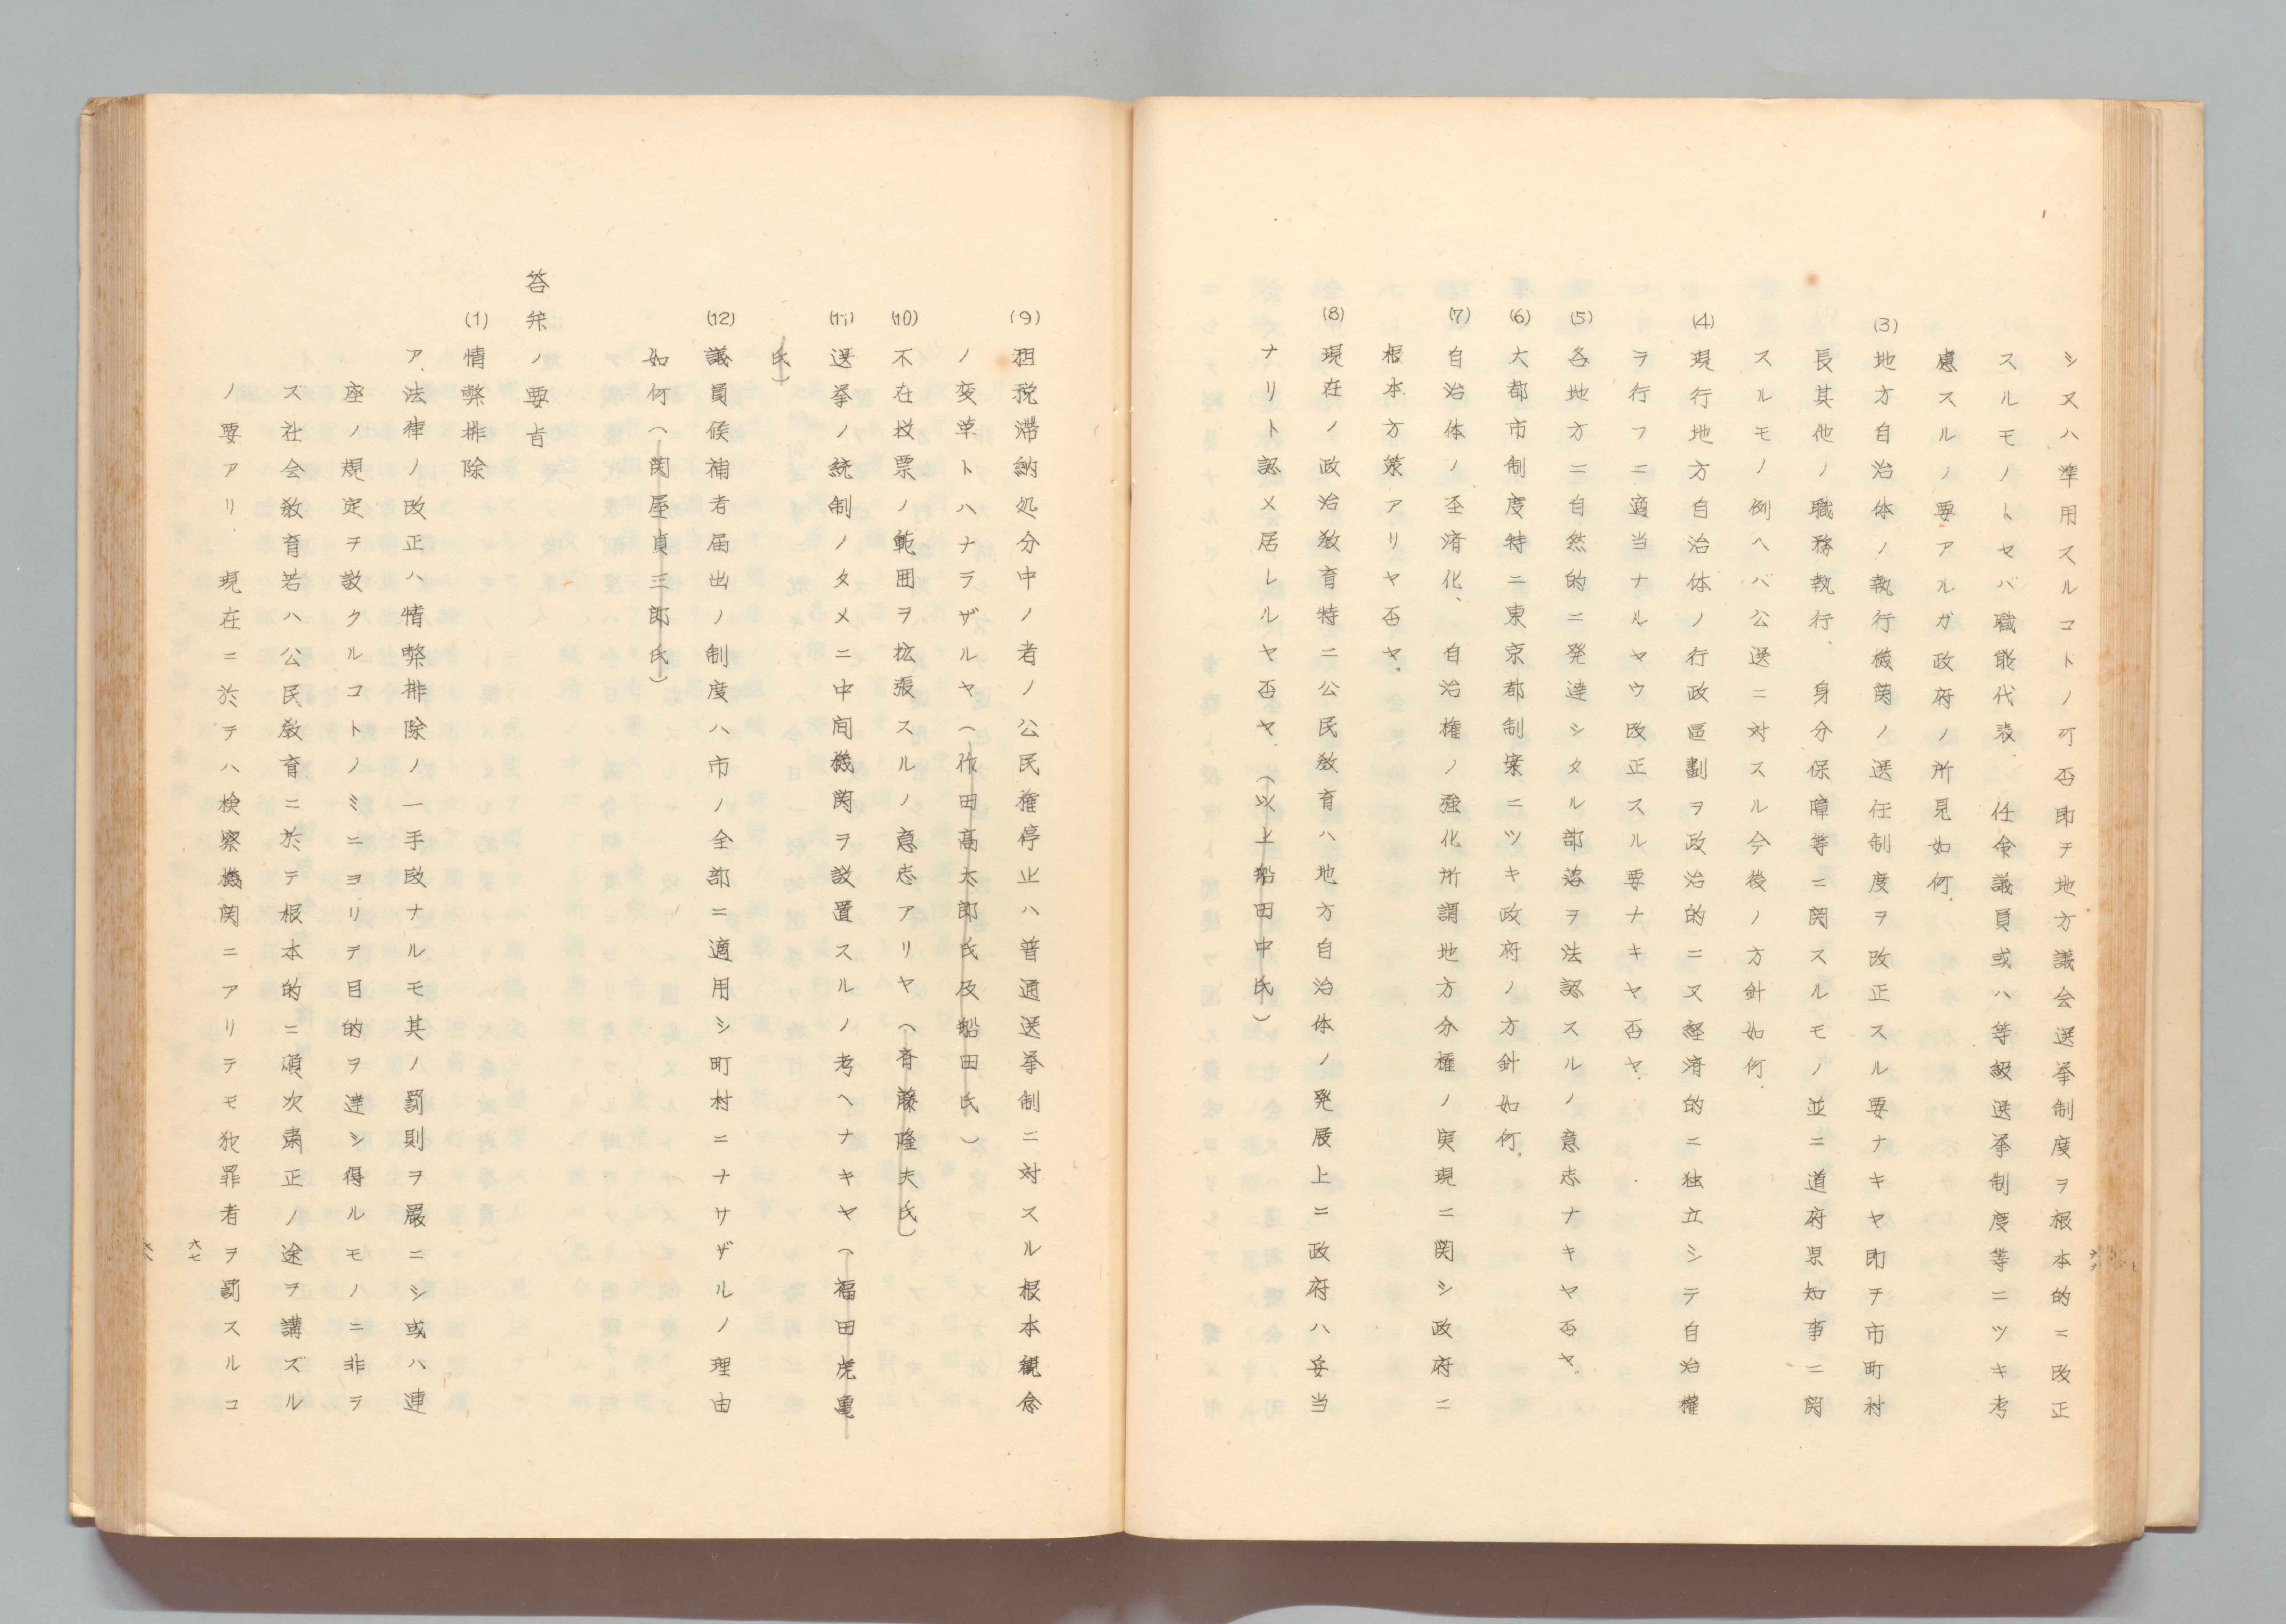 シ又ハ準用スルコトノ可否即チ地方議会選挙制度ヲ根本的ニ改正
スルモノトセバ職能代表、任命議員或ハ等級選挙制度等ニツキ考
慮スルノ要アルガ政府ノ所見如何、
(3)地方自治体ノ執行機関ノ選任制度ヲ改正スル要ナキヤ即チ市町村
長其他ノ職務執行、身分保障等ニ関スルモノ並ニ道府県知事ニ関
スルモノ例ヘバ公選ニ対スル今後ノ方針如何、
(4)現行地方自治体ノ行政区劃ヲ政治的ニ又経済的ニ独立シテ自治権
ヲ行フニ適当ナルヤウ改正スル要ナキヤ否ヤ、
(5)各地方ニ自然的ニ発達シタル部落ヲ法認スルノ意志ナキヤ否ヤ。
(6)大都市制度特ニ東京都制案ニツキ政府ノ方針如何。
(7)自治体ノ経済化、自治権ノ強化所謂地方分権ノ実現ニ関シ政府ニ
根本方策アリヤ否ヤ。
(8)現在ノ政治教育特ニ公民教育ハ地方自治体ノ発展上ニ政府ハ妥当
ナリト認メ居レルヤ否ヤ、(以上船田中氏)
(9)租税滞納処分中ノ者ノ公民権停止ハ普通選挙制ニ対スル根本観念
ノ変革トハナラザルヤ(作田高太郎氏及船田氏)
(10)不在投票ノ範囲ヲ拡張スルノ意志アリヤ(斉藤隆夫氏)
(11)選挙ノ統制ノタメニ中間機関ヲ設置スルノ考ヘナキヤ(福田虎亀
氏)
(12)議員候補者届出ノ制度ハ市ノ全部ニ適用シ町村ニナサザルノ理由
如何(関屋貞三郎氏)
答弁ノ要旨
(1)情弊排除
ア、法律ノ改正ハ情弊排除ノ一手段ナルモ其ノ罰則ヲ厳ニシ或ハ連
座ノ規定ヲ設クルコトノミニヨリテ目的ヲ達シ得ルモノニ非ラ
ズ社会教育若ハ公民教育ニ於テ根本的ニ順次粛正ノ途ヲ講ズル
ノ要アリ、現在ニ於テハ検察機関ニアリテモ犯罪者ヲ罰スルコ
六七